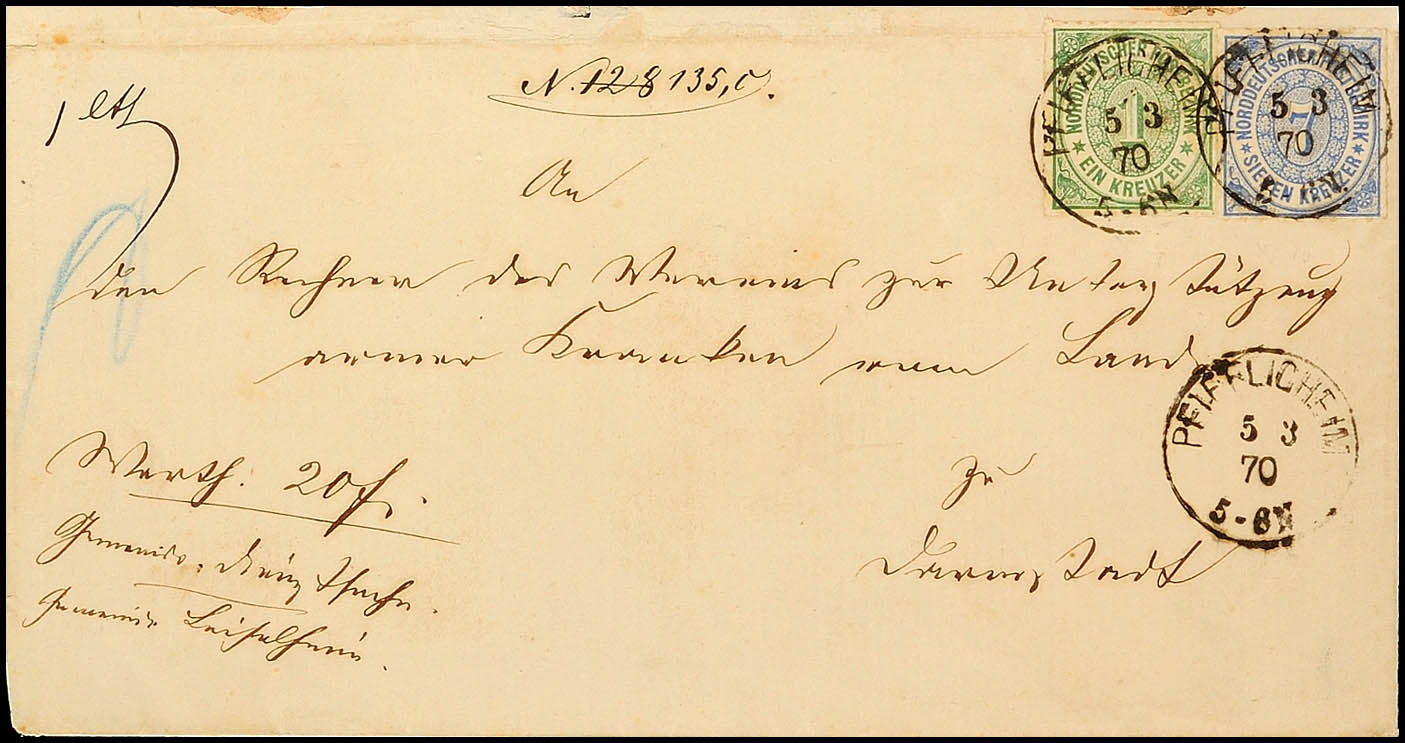 N. 128 135, c.
1 Lth
NORDDEUTSCHER POSTBEZIRK
1
EIN KREUZER
NORDDEUTSCHER POSTBEZIRK
7
SIEBEN KREUZER
PFIFFLIGHEIM
5 3
70
5-6N
PFIFFLIGHEIM
5 3
70
5-6N
An
den Rechner des Vereins zur Unterstützung
armer Kranken vom Lande
PFIFFLIGHEIM
5 3
70
5-6N
zu
Darmstadt
Werth: 20 f.
Gemeinde-Dienstsache.
Gemeinde Leiselheim.